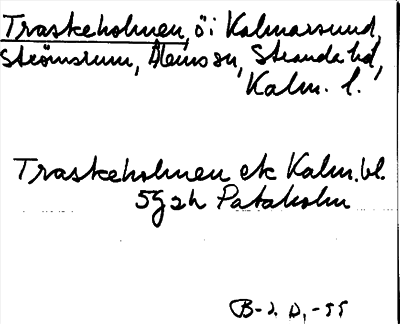 Traskeholmen, ö i Kalmarsund,
Strömsrum, Ålems sn, Stranda hd,
Kalm. l.
Traskeholmen ek Kalm. bl.
5g2h Pataholm
B-2. D, -55